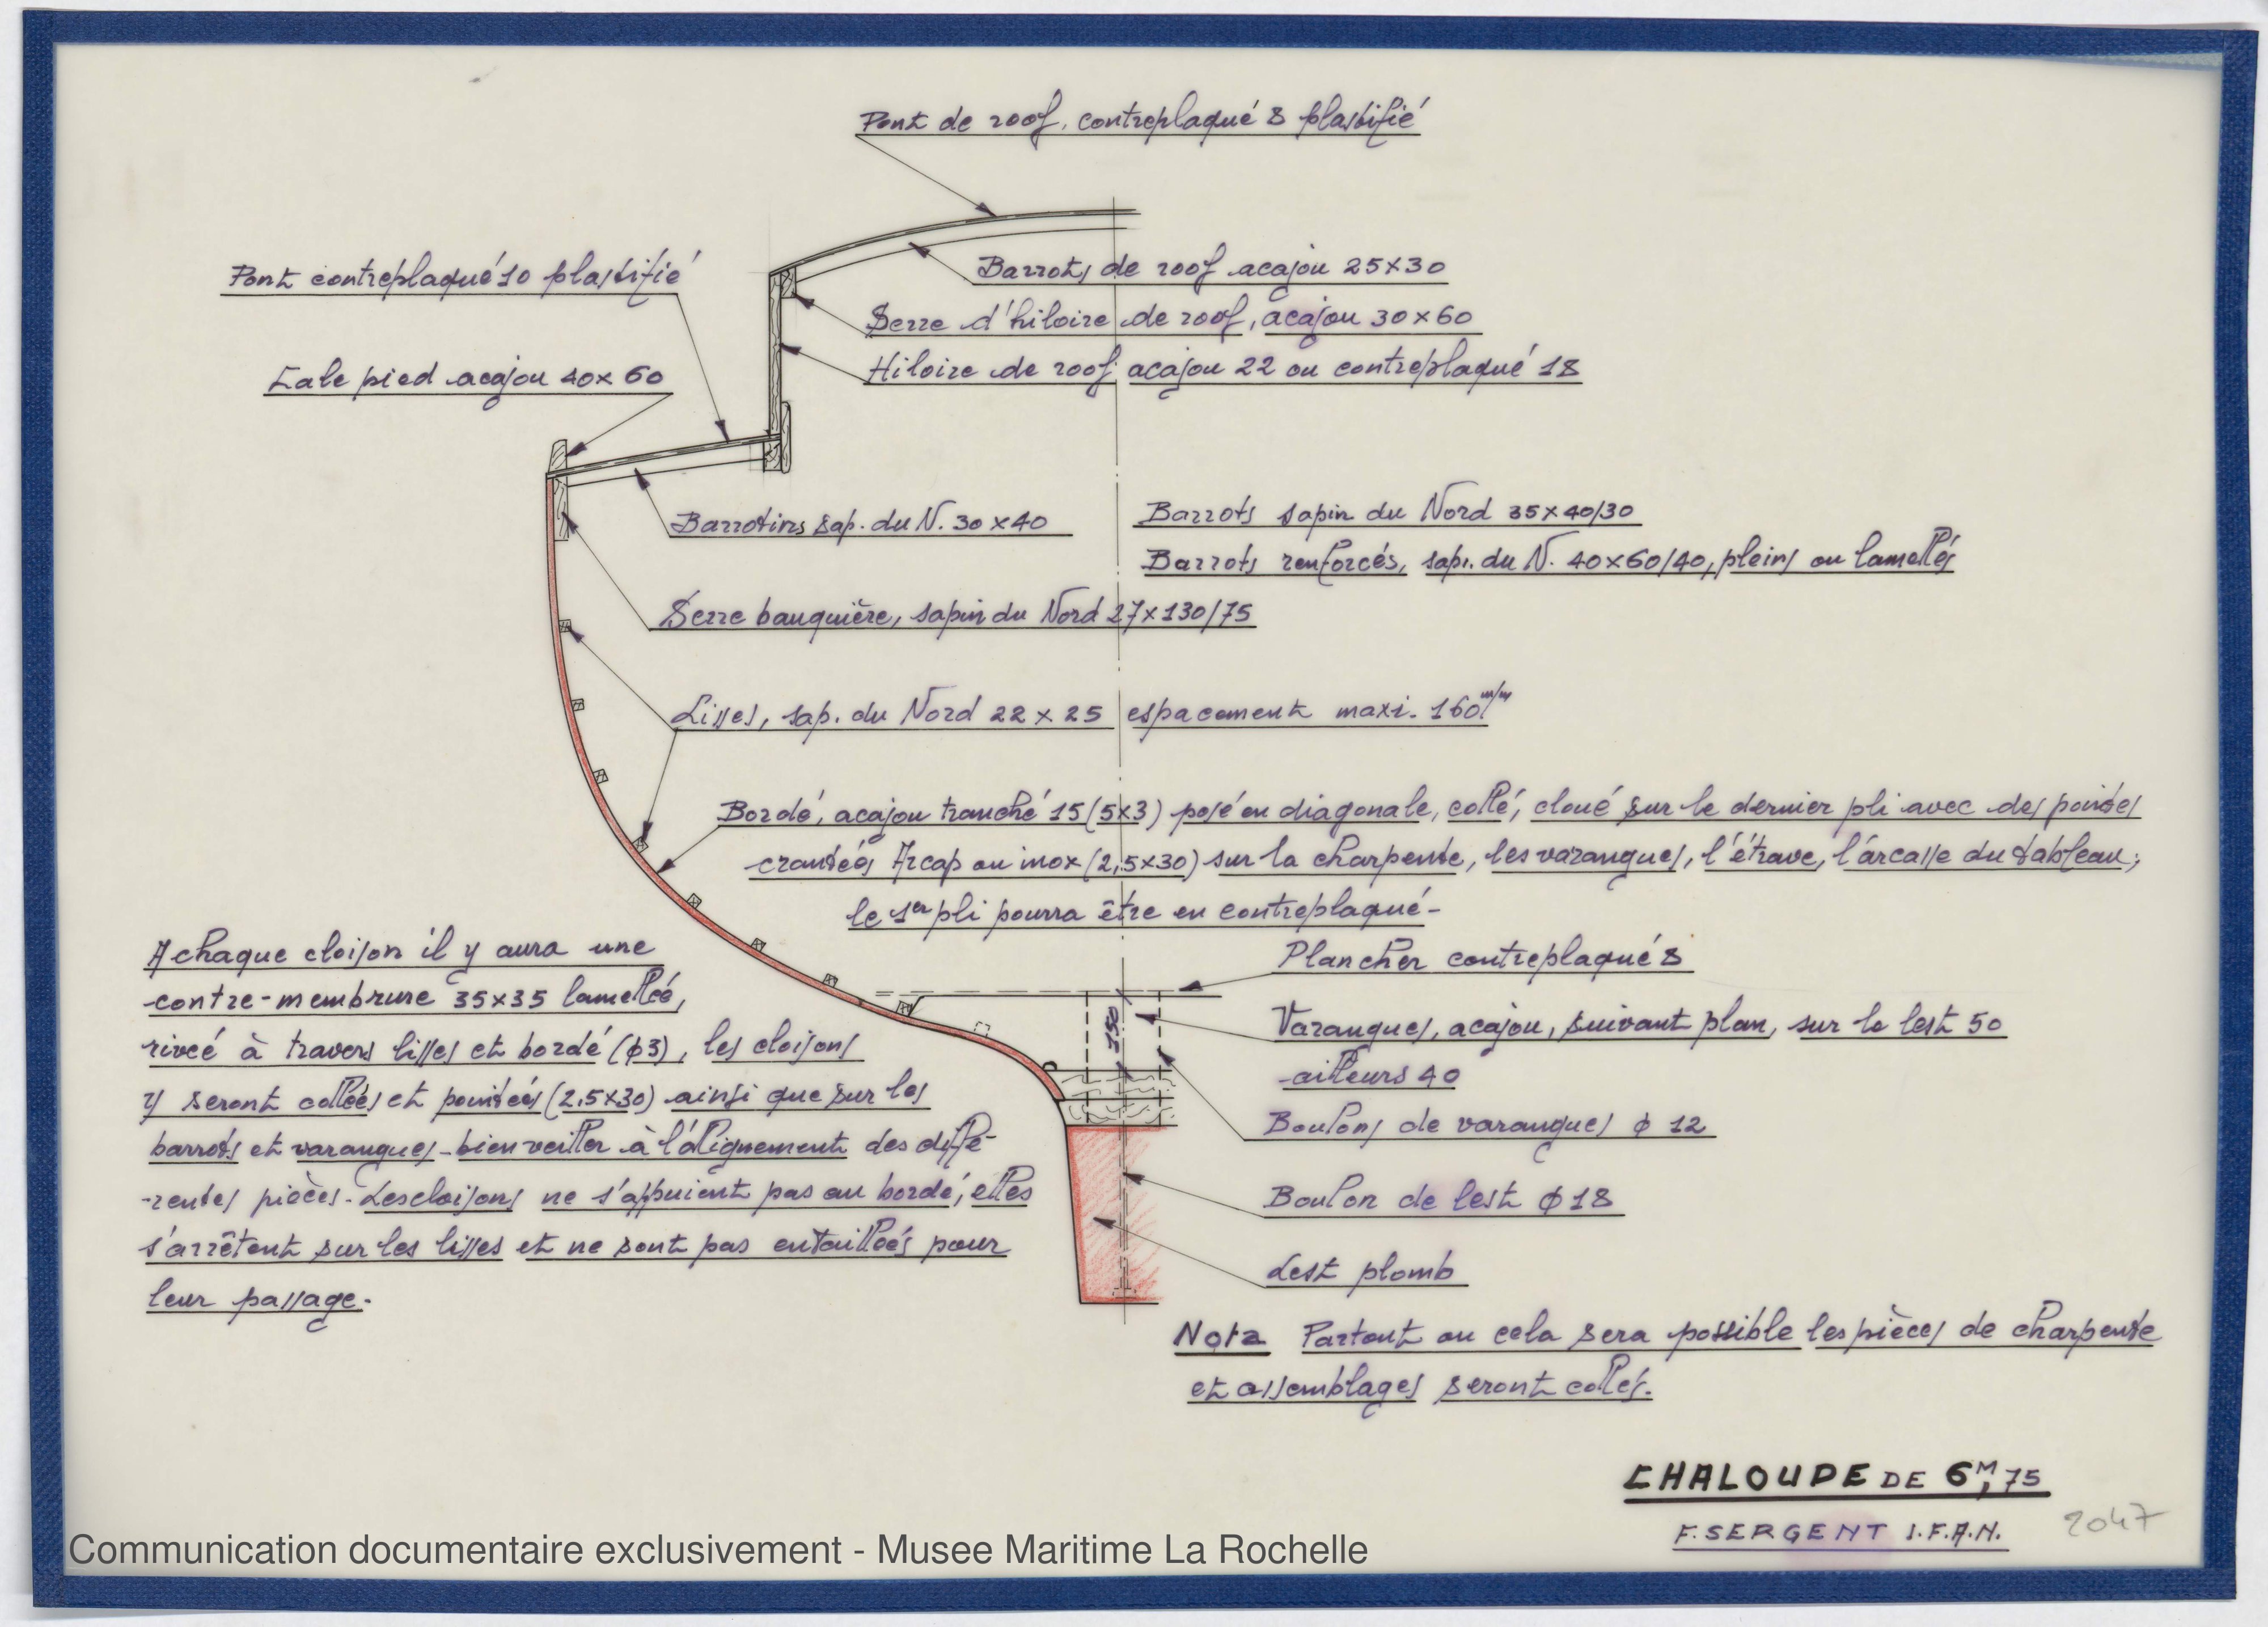 Pont de roof, contreplaqué 8 plastifié
Pont contreplaqué 10 plastifié
Barrots de roof acajou 25x30
Serre d'hiloire de roof, acajou 30x60
Cale pied acajou 40x60
Hiloire de roof acajou 22 ou contreplaqué 18
Barrotins sap. du N. 30x40
Barrots sapin du Nord 35x40/30
Barrots renforcés, sap. du N. 40x60/40, pleins ou lamellés
Serre bauquière, sapin du Nord 27x130/75
Lisses, sap. du Nord 22x25 espacement maxi. 160 m/m
Bordé, acajou tranché 15 (5x3) posé en diagonale, collé, cloué sur le dernier pli avec des pointes
crantées Arcap ou inox (2,5x30) sur la charpente, les varangues, l'étrave, l'arcasse du tableau;
le 1er pli pourra être en contreplaqué-
A chaque cloison il y aura une
contre-membrure 35x35 lamellée,
rivée à travers lisses et bordé (φ3), les cloisons
y seront collées et pointées (2.5x30) ainsi que sur les
barrots et varangues - bien veiller à l'alignement des diffé-
-rentes pièces. Les cloisons ne s'appuient pas au bordé, elles
s'arrêtent sur les lisses et ne sont pas entaillées pour
leur passage.
Plancher contreplaqué 8
150
Varangues, acajou, suivant plan, sur le lest 50
ailleurs 40
Boulons de varangues φ 12
Boulon de lest φ 18
Lest plomb
Nota Partout ou cela sera possible les pièces de charpente
et assemblages seront collés.
CHALOUPE DE 6M,75
F. SERGENT I.F.A.N.
2047
Communication documentaire exclusivement - Musee Maritime La Rochelle